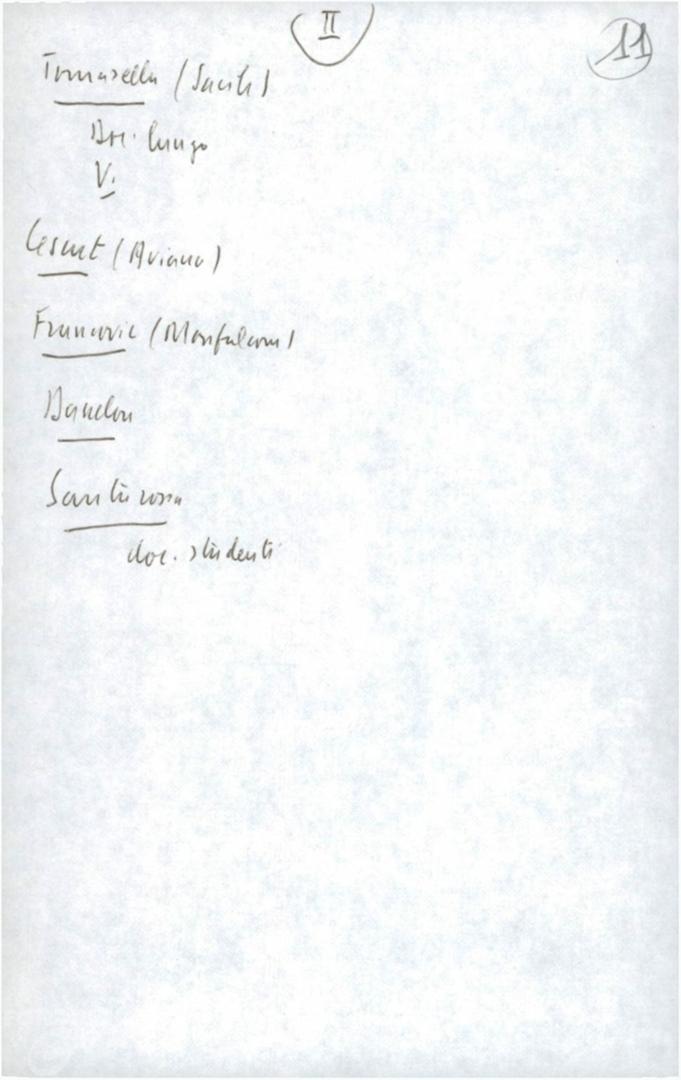 II
11
Tomasella (Sacile)
Doc. lungo
V.
(Aviano)
Francovic (Monfalcone)
Santarossa
doc. studenti